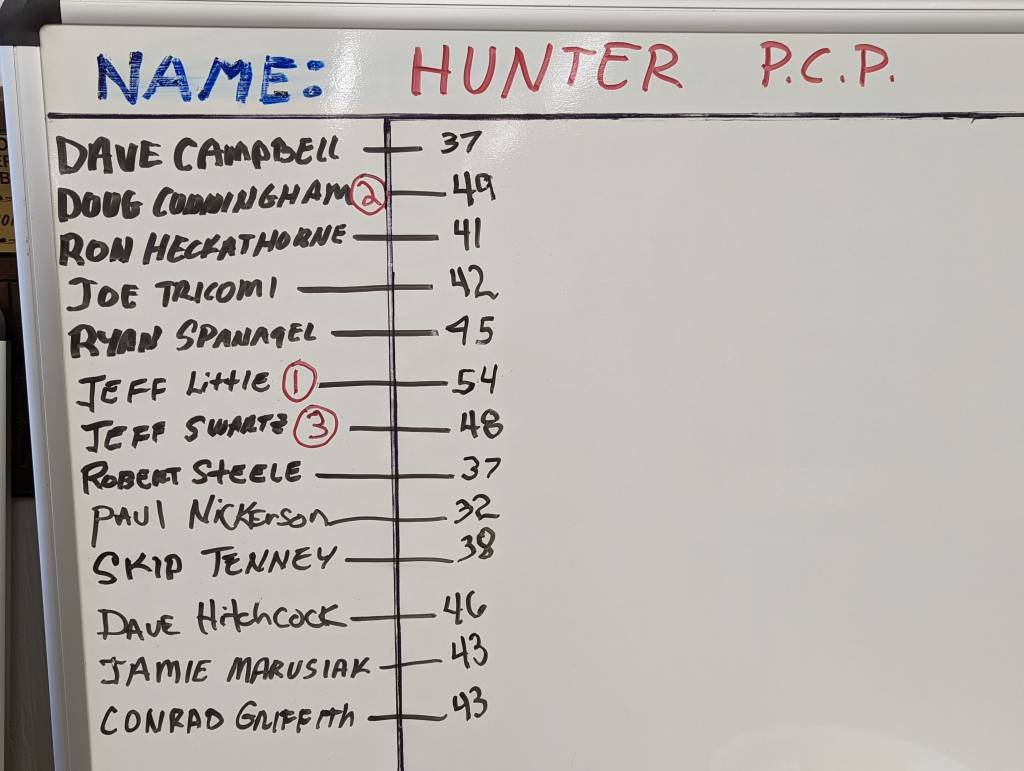 NAME: HUNTER P.C.P.
DAVE CAMPBELL — 37
DOUG CUNNINGHAM ② — 49
RON HECKATHORNE — 41
JOE TRICOMI — 42
RYAN SPANAGEL — 45
JEFF LittlE ① — 54
JEFF SWARTZ ③ — 48
ROBERT STEELE — 37
PAUl NickErson — 32
SKIP TENNEY — 38
DAVE HitchCock — 46
JAMIE MARUSIAK — 43
CONRAD GRIFFITh — 43